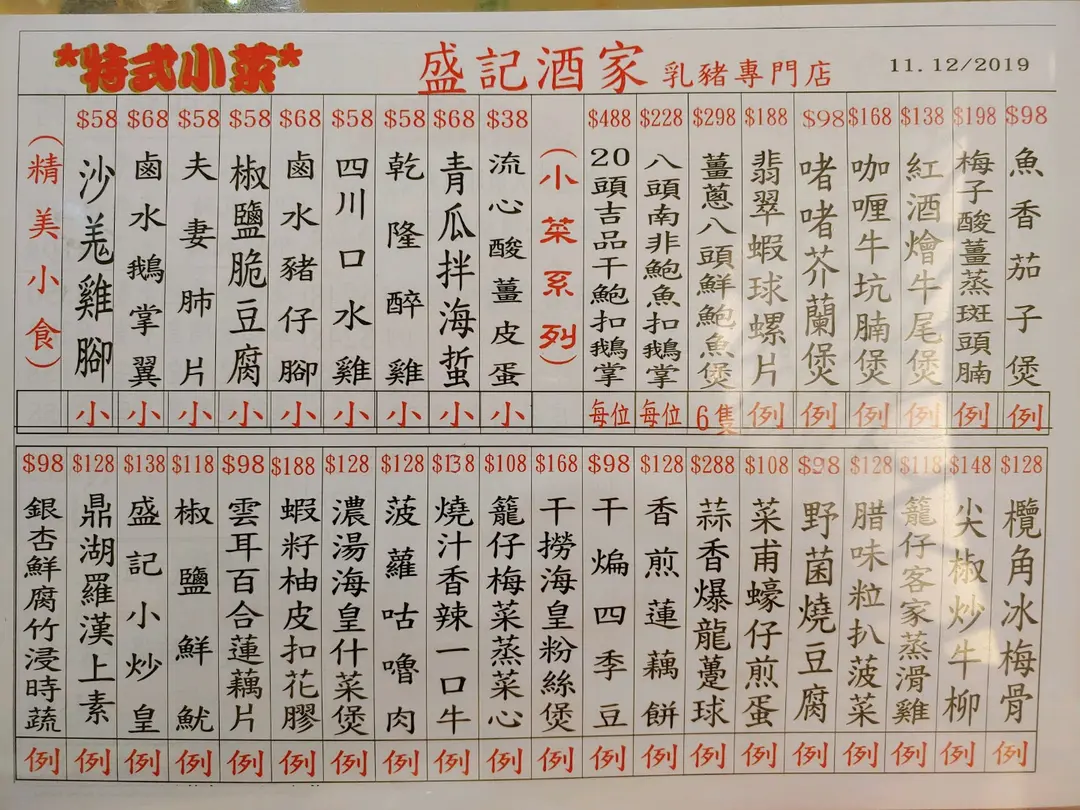 *特式小菜*
盛記酒家 乳豬專門店
11.12/2019
$98 魚香茄子煲 例
$198 梅子酸薑蒸斑頭腩 例
$138 紅酒燴牛尾煲 例
$168 咖喱牛坑腩煲 例
$98 啫啫芥蘭煲 例
$188 翡翠蝦球螺片 例
$298 薑蔥八頭鮮鮑魚煲 6隻
$228 八頭南非鮑魚扣鵝掌 每位
$488 20頭吉品干鮑扣鵝掌 每位
(小菜系列)
$38 流心酸薑皮蛋 小
$68 青瓜拌海蜇 小
$58 乾隆醉雞 小
$58 四川口水雞 小
$68 鹵水豬仔腳 小
$58 椒鹽脆豆腐 小
$58 夫妻肺片 小
$68 鹵水鵝掌翼 小
$58 沙羌雞腳 小
(精美小食)
$128 欖角冰梅骨 例
$148 尖椒炒牛柳 例
$118 籠仔客家蒸滑雞 例
$128 腊味粒扒菠菜 例
$98 野菌燒豆腐 例
$108 菜甫蠔仔煎蛋 例
$288 蒜香爆龍躉球 例
$128 香煎蓮藕餅 例
$98 干煸四季豆 例
$168 干撈海皇粉絲煲 例
$108 籠仔梅菜蒸菜心 例
$138 燒汁香辣一口牛 例
$128 菠蘿咕嚕肉 例
$128 濃湯海皇什菜煲 例
$188 蝦籽柚皮扣花膠 例
$98 雲耳百合蓮藕片 例
$118 椒鹽鮮魷 例
$138 盛記小炒皇 例
$128 鼎湖羅漢上素 例
$98 銀杏鮮腐竹浸時蔬 例